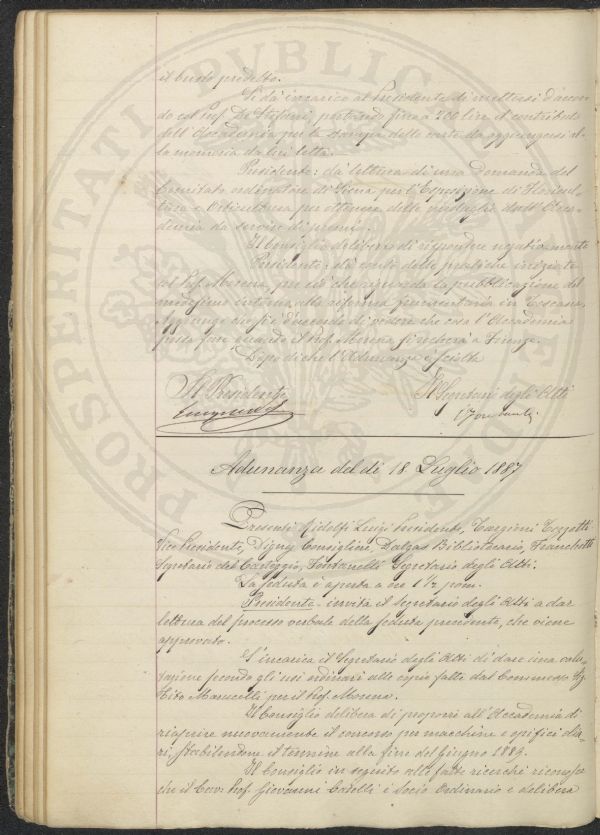 il buono predetto.
Si dà incarico al Presidente di mettersi d'accor-
do col Prof. De Stefani, portando fino a 200 lire il contributo
dell'Accademia per la stampa delle carte da aggiungersi al-
la memoria da lui letta.
Presidente: dà lettura di una domanda del
Comitato ordinatore di Siena per l'Esposizione di Floricul-
tura e Orticultura per ottenere delle medaglie dall'Acca-
demia da servire di premi.
Il Consiglio delibera di rispondere negativamente
Presidente: dà conto delle pratiche iniziate
col Prof. Morena, per ciò che riguarda la pubblicazione del
medesimo intorno alle riforme finanziarie in Toscana.
Aggiunge che si è d'accordo di vedere che cosa l'Accademia
possa fare quando il Prof. Morena si recherà a Firenze.
Dopo di che l'Adunanza è sciolta
Il Presidente
Il Segretario degli Atti
Adunanza del dì 18 Luglio 1887
Presenti Ridolfi Luigi Presidente, Targioni Tozzetti
Vice Presidente, Digny Consigliere, Dalgas Bibliotecario, Franchetti
Segretario del Carteggio, Fontanelli Segretario degli Atti.
La seduta è aperta a ore 1 1/2 pom.
Presidente - invita il Segretario degli Atti a dar
lettura del processo verbale della seduta precedente, che viene
approvato.
S'incarica il Segretario degli Atti di dare una valu-
tazione secondo gli usi ordinari alle copie fatte dal Commesso Sig
Tito Marucelli per il Prof. Morena.
Il Consiglio delibera di proporre all'Accademia di
riaprire nuovamente il concorso per macchine e opifici olia-
ri, stabilendone il termine alla fine del Giugno 1889.
Il Consiglio in seguito alle fatte ricerche riconosce
che il Cav. Prof. Giovanni Caselli è Socio Ordinario e delibera
PROSPERITATI PVBLICAE